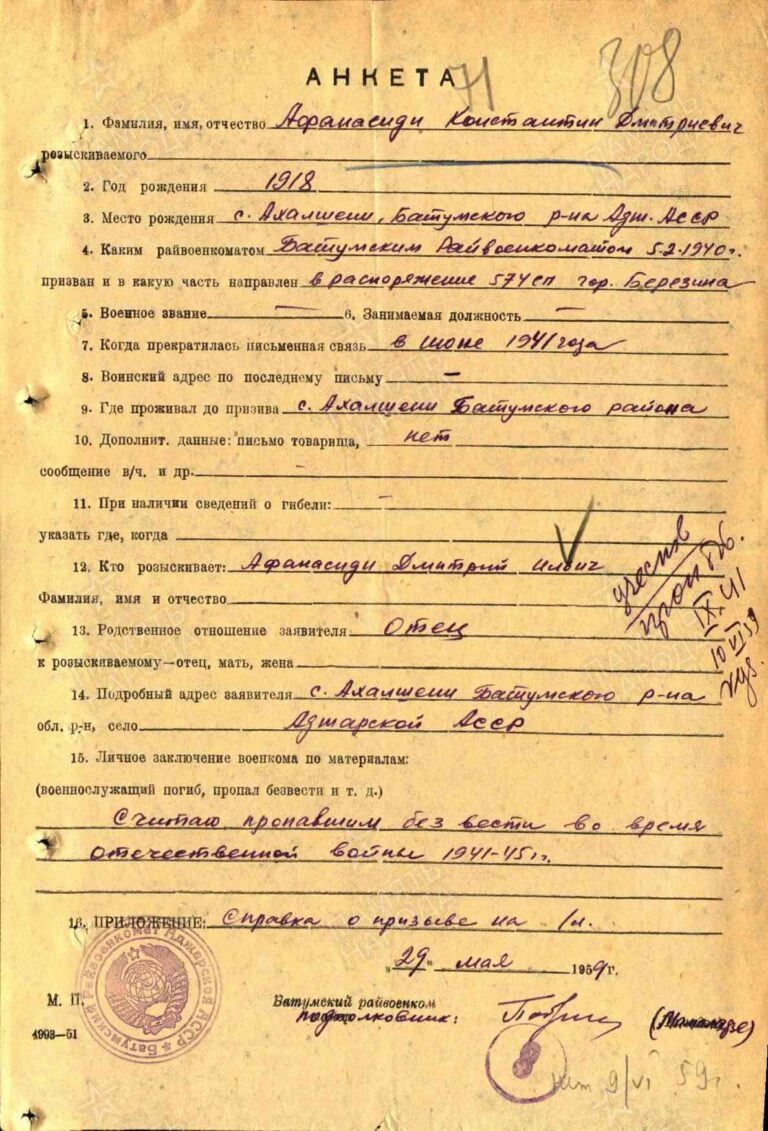 308
АНКЕТА 71
1. Фамилия, имя, отчество Афанасиди Константин Дмитриевич
розыскиваемого
2. Год рождения 1918
3. Место рождения с. Ахалшени, Батумского р-на Адж. Асср
4. Каким райвоенкоматом Батумским Райвоенкоматом 5-2-1940г.
призван и в какую часть направлен в распоряжение 574 сп гор. Березина
5. Военное звание — 6. Занимаемая должность —
7. Когда прекратилась письменная связь в июне 1941 года
8. Воинский адрес по последнему письму —
9. Где проживал до призыва с. Ахалшени Батумского района
10. Дополнит. данные: письмо товарища, нет
сообщение в/ч. и др. –
11. При наличии сведений о гибели: –
указать где, когда
12. Кто розыскивает: Афанасиди Дмитрий Ильич
Фамилия, имя и отчество
13. Родственное отношение заявителя Отец
к розыскиваемому—отец, мать, жена
14. Подробный адрес заявителя с. Ахалшени Батумского р-на
обл. р-н, село Аджарской Асср
15. Личное заключение военкома по материалам:
(военнослужащий погиб, пропал безвести и т. д.)
Считаю пропавшим без вести во время
отечественной войны 1941-45гг.
16. ПРИЛОЖЕНИЕ: Справка о призыве на 1л.
„29" мая 1959г.
М. П. Батумский райвоенком
подполковник:
4993—51
IX.41
10 VI 59
9/VI 59г.
Батумский Райвоенкомат Аджарской АССР